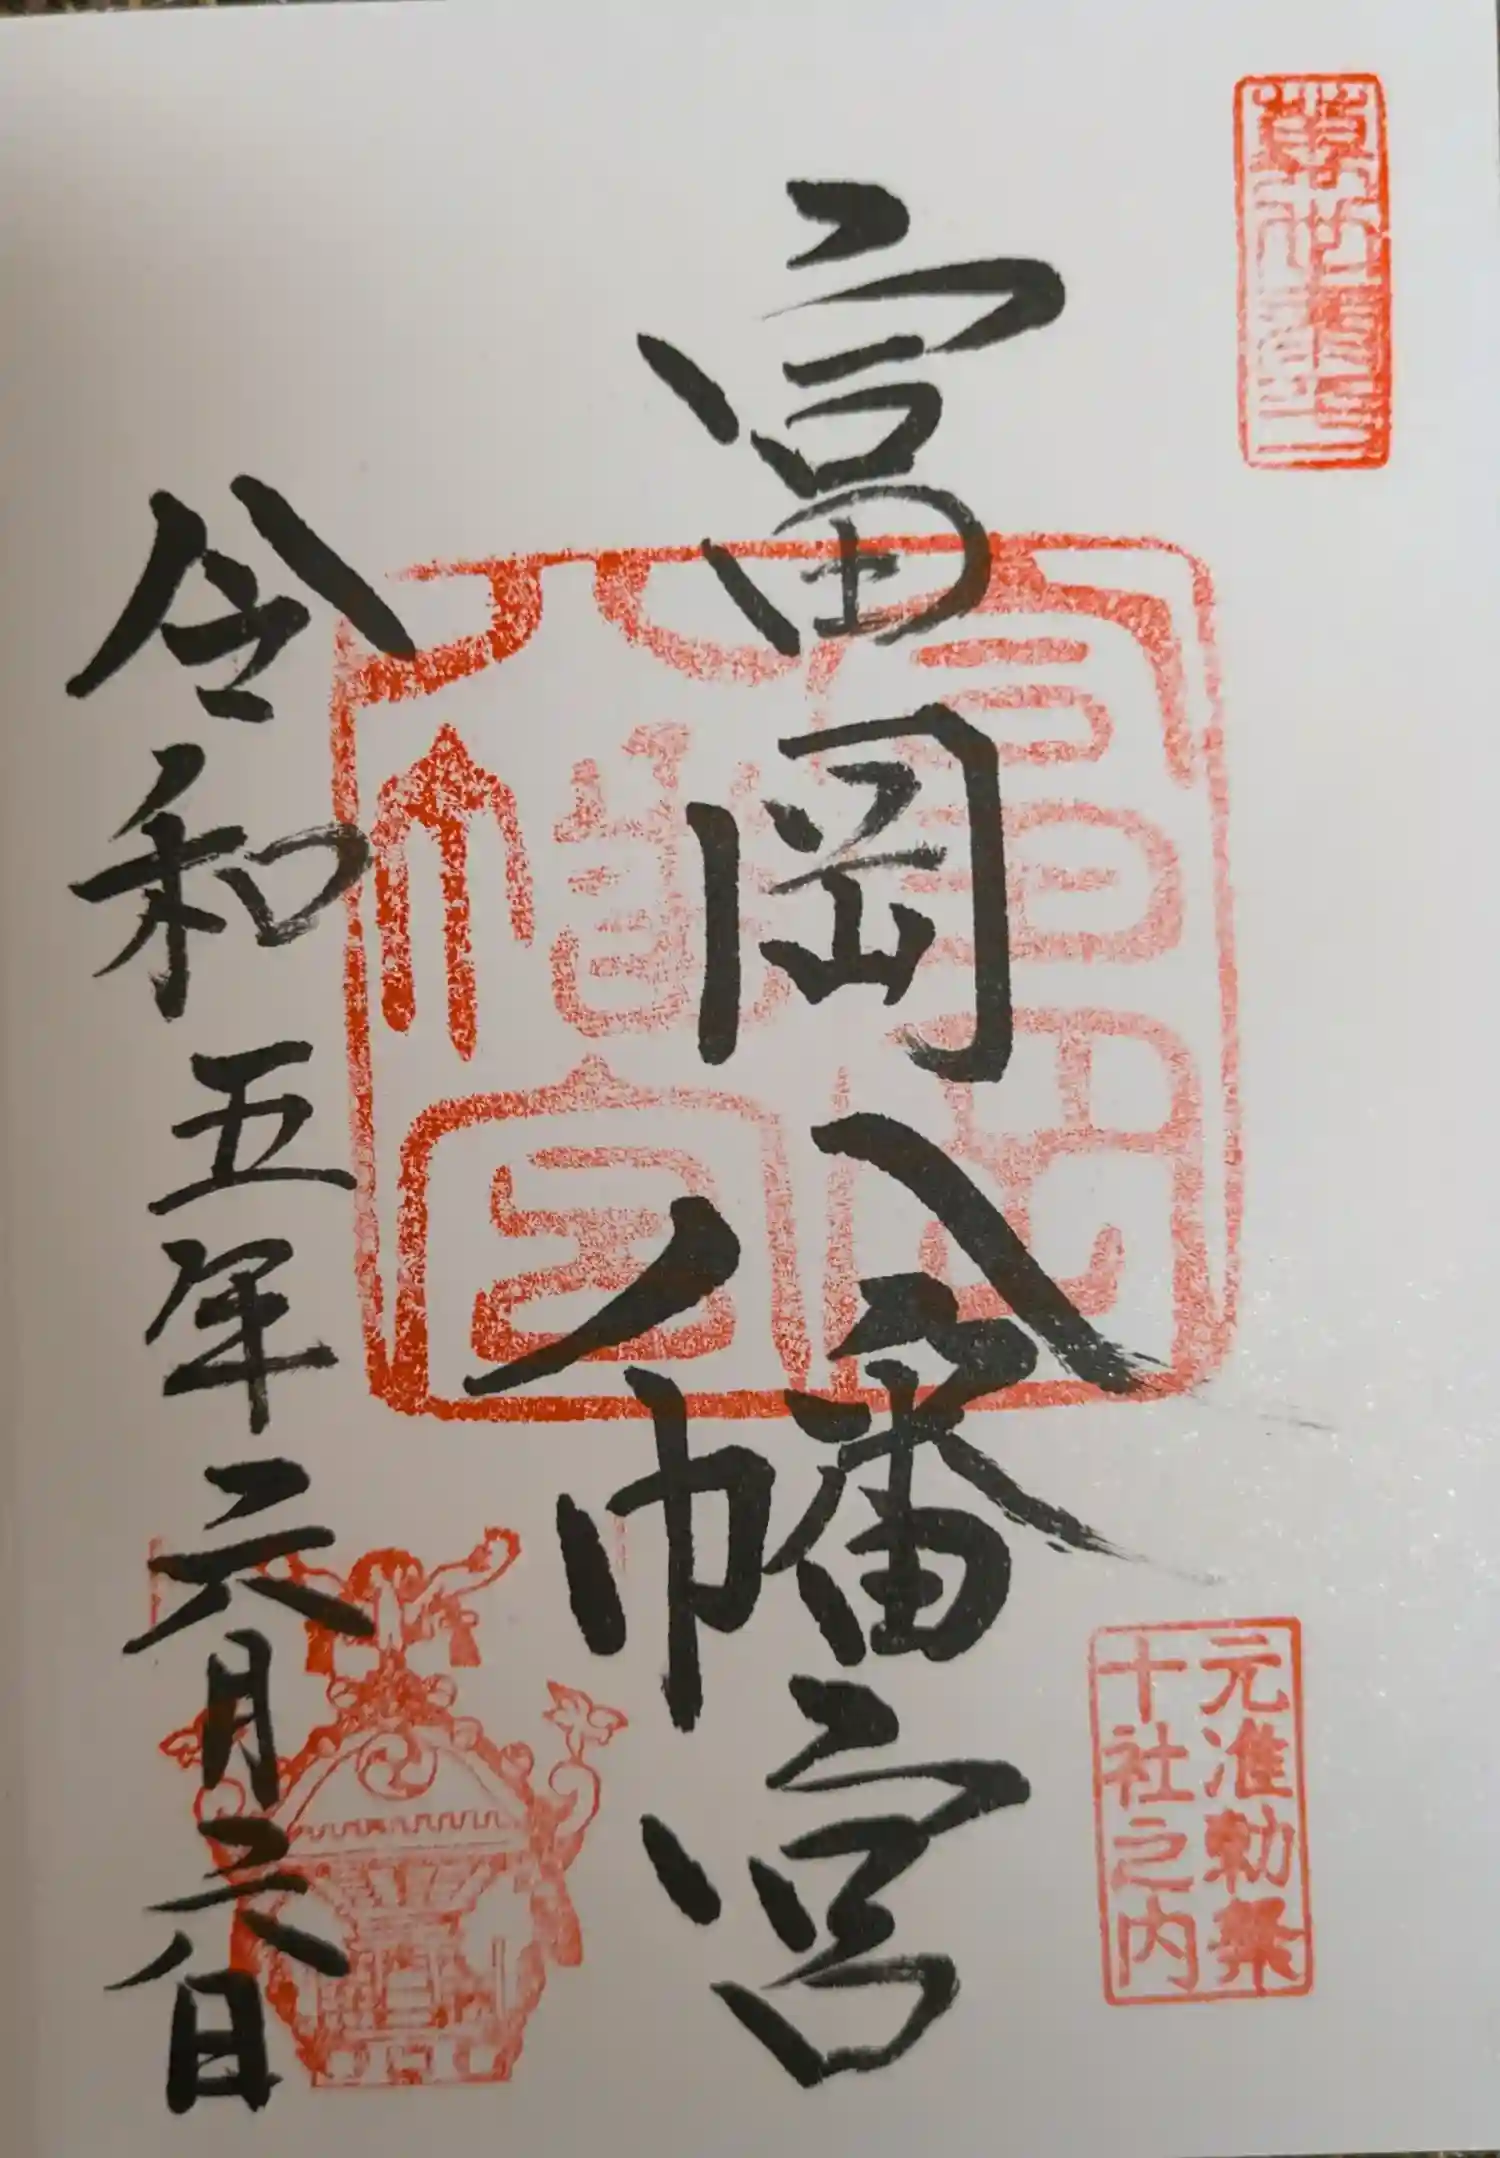 富岡八幡宮
令和五年六月六日
富岡
八幡宮
元准勅祭
十社之内